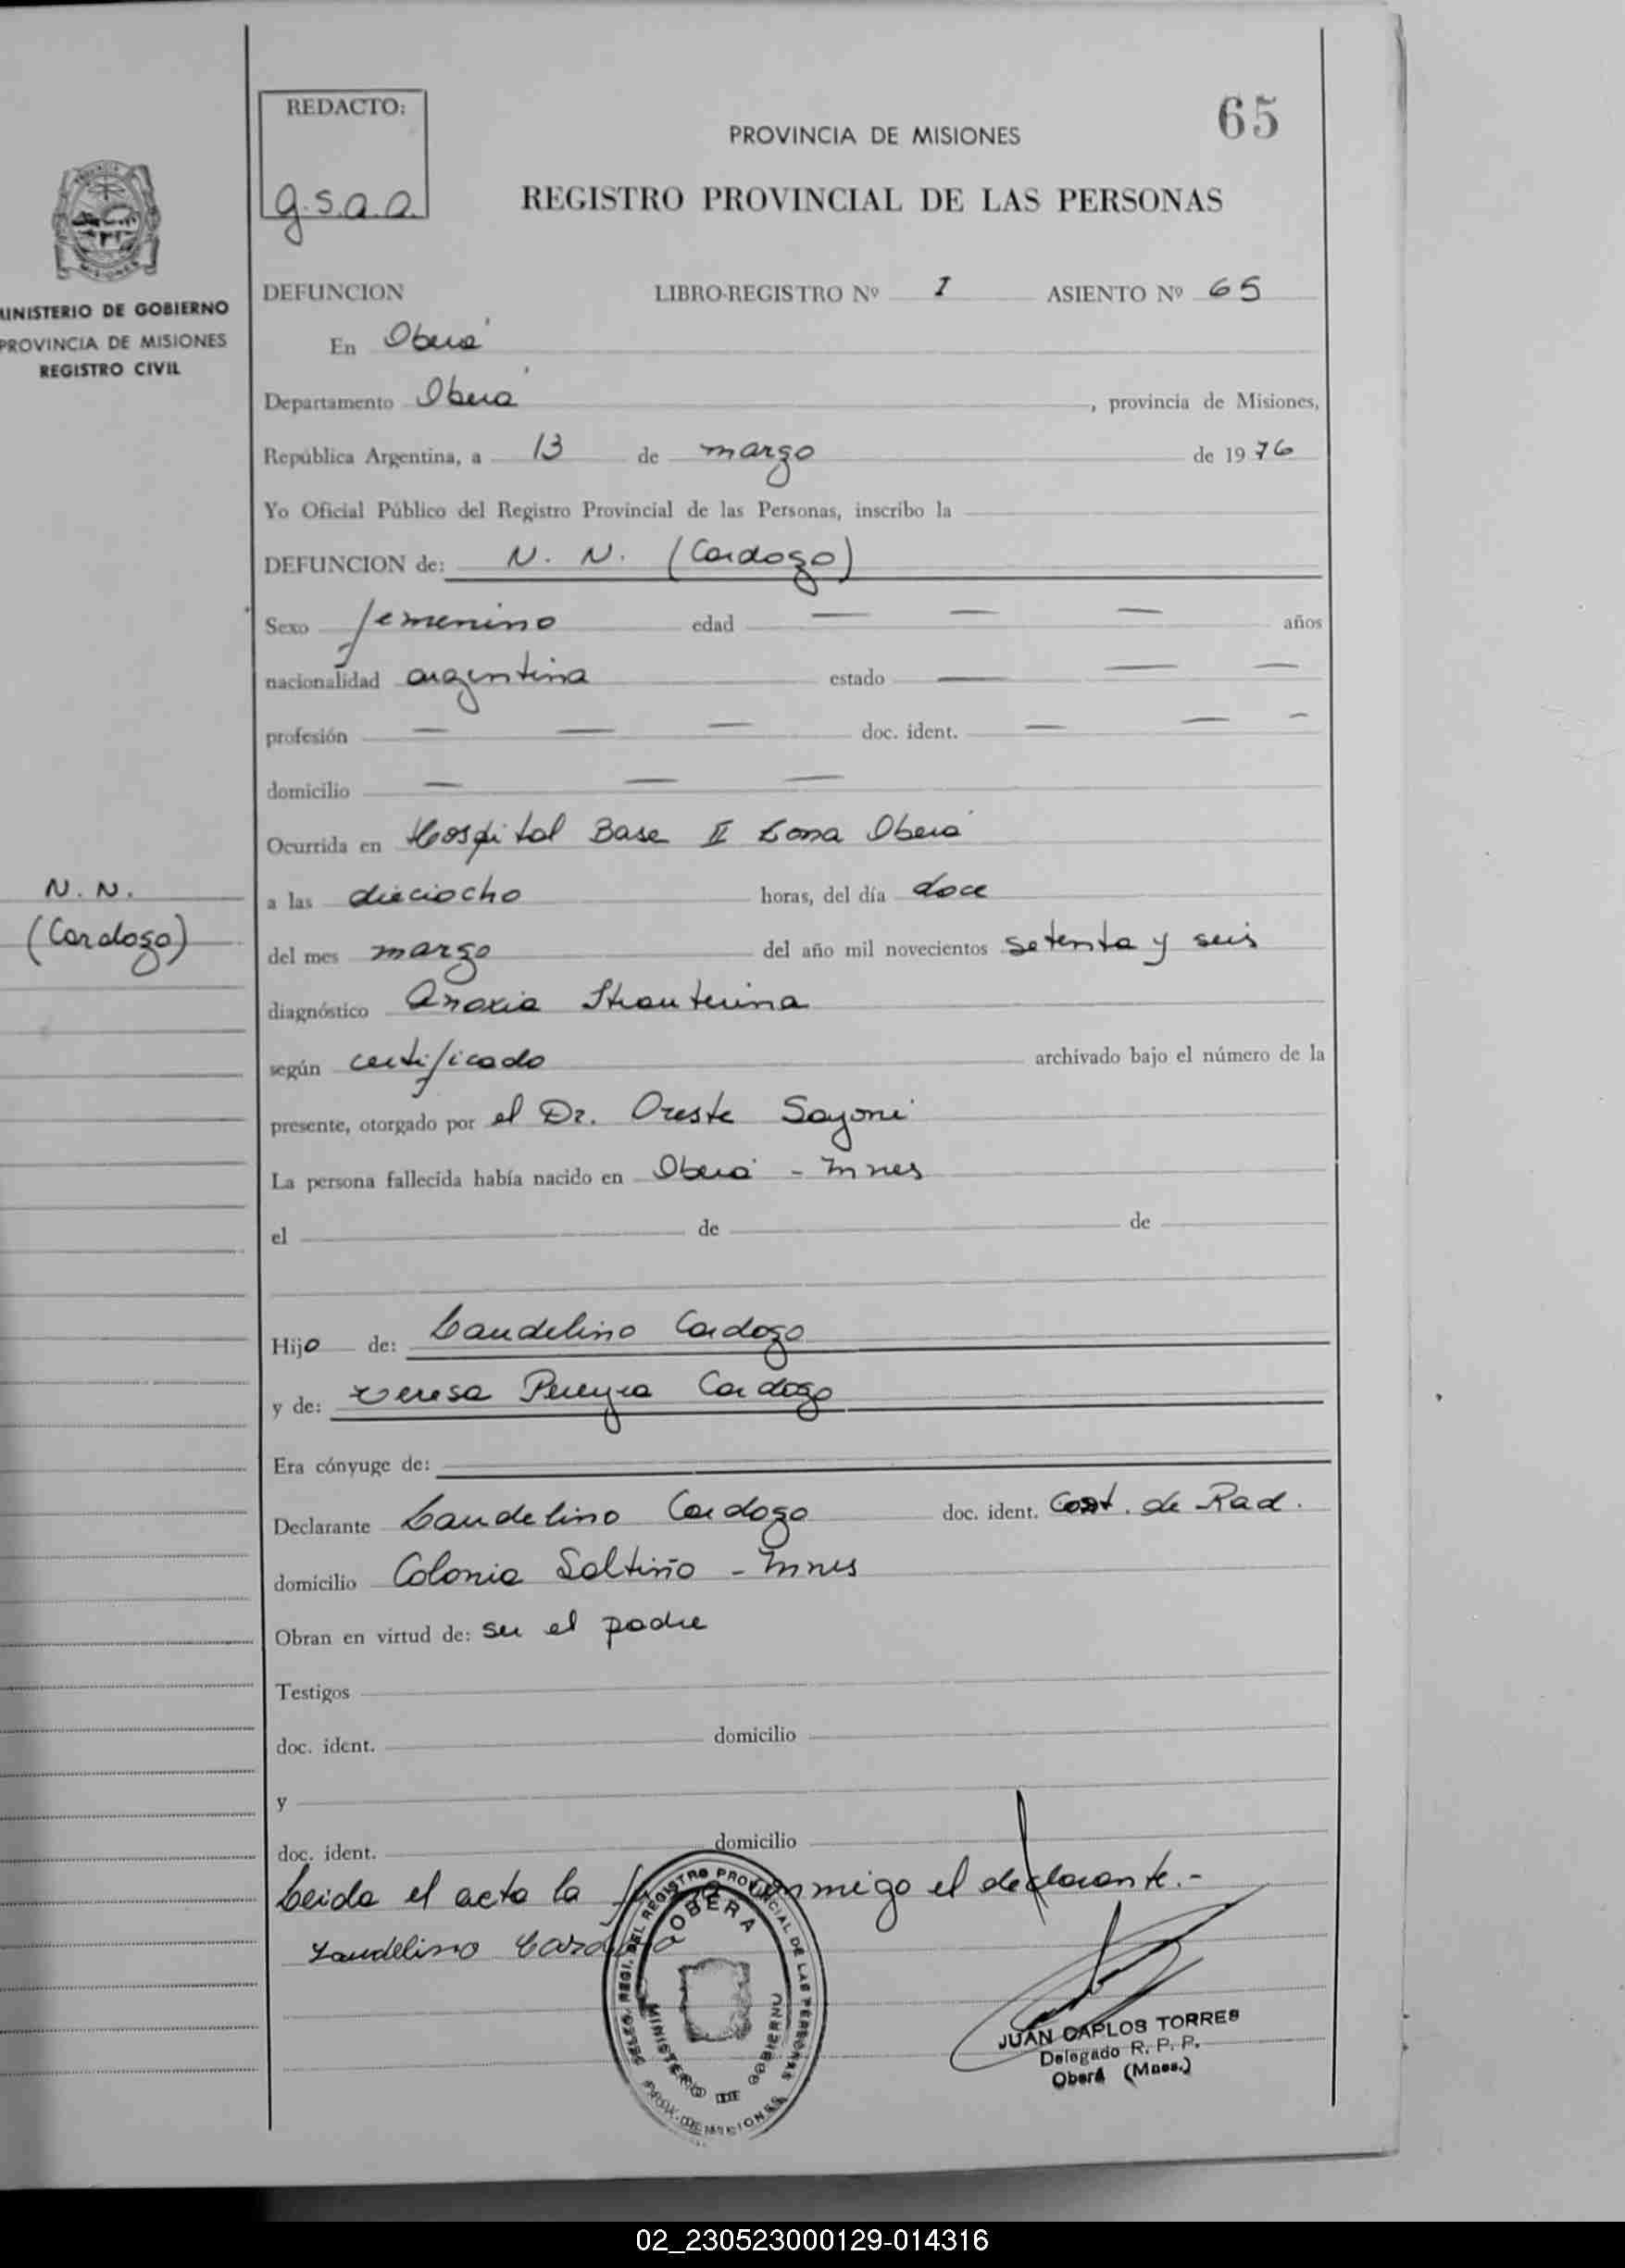 REDACTO:
g.s.a.a.
65
PROVINCIA DE MISIONES
REGISTRO PROVINCIAL DE LAS PERSONAS
MINISTERIO DE GOBIERNO
PROVINCIA DE MISIONES
REGISTRO CIVIL
DEFUNCION LIBRO-REGISTRO Nº 1 ASIENTO Nº 65
En Oberá
Departamento Oberá, provincia de Misiones,
República Argentina, a 13 de marzo de 1976
Yo Oficial Público del Registro Provincial de las Personas, inscribo la
DEFUNCION de: N. N. (Cardozo)
Sexo femenino edad — — — años
nacionalidad argentina estado — — —
profesión — — — doc. ident. — — —
domicilio — — —
Ocurrida en Hospital Base II Zona Oberá
N. N.
(Cardozo)
a las dieciocho horas, del día doce
del mes marzo del año mil novecientos setenta y seis
diagnóstico Anoxia
según certificado archivado bajo el número de la
presente, otorgado por el Dr. Oreste
La persona fallecida había nacido en Oberá - Mnes
el de de
Hijo de: Laudelino Cardozo
y de: Teresa Pereyra Cardozo
Era cónyuge de:
Declarante Laudelino Cardozo doc. ident. Cost. de Rad.
domicilio Colonia Saltiño - Mnes
Obran en virtud de: ser el padre
Testigos
doc. ident. domicilio
y
doc. ident. domicilio
Leida el acta la firma conmigo el declarante.-
Laudelino Cardozo
DEL REGISTRO PROVINCIAL DE LAS PERSONAS
OBERA
MINISTERIO DE GOBIERNO
PROV. DE MISIONES
JUAN CARLOS TORRES
Delegado R. P. P.
Oberá (Mnes.)
02_230523000129-014316